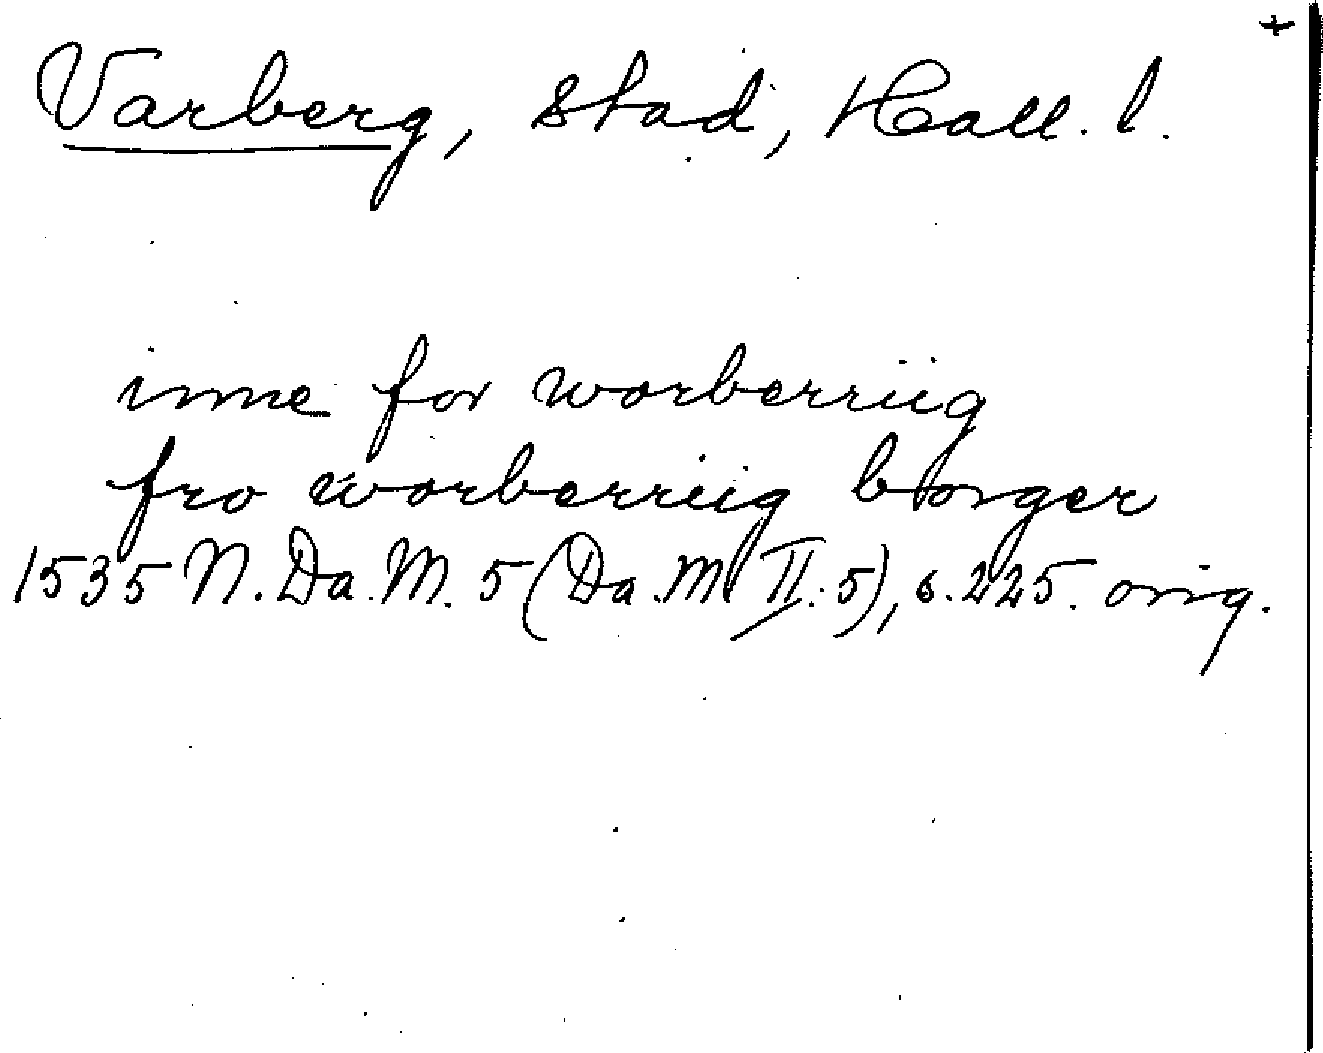 +
Varberg, stad, Hall. l.
inne for worberriig
fro worberriig borger
1535 N. Da. M. 5 (Da. M II. 5), s. 225. orig.